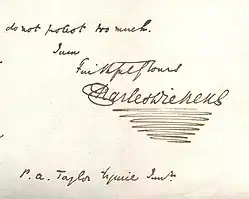 do not protest too much.
I am
Faithfully Yours
Charles Dickens
P. A. Taylor Esquire Junr.